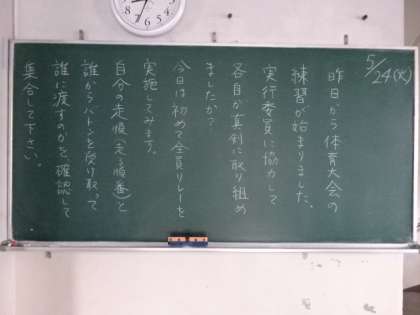 5/24(火)
昨日から体育大会の
練習が始まりました。
実行委員に協力して
各自が真剣に取り組め
ましたか?
今日は初めて全員リレーを
実施してみます。
自分の走順(走る順番)と
誰からバトンを受け取って
誰に渡すのかを確認して
集合して下さい。